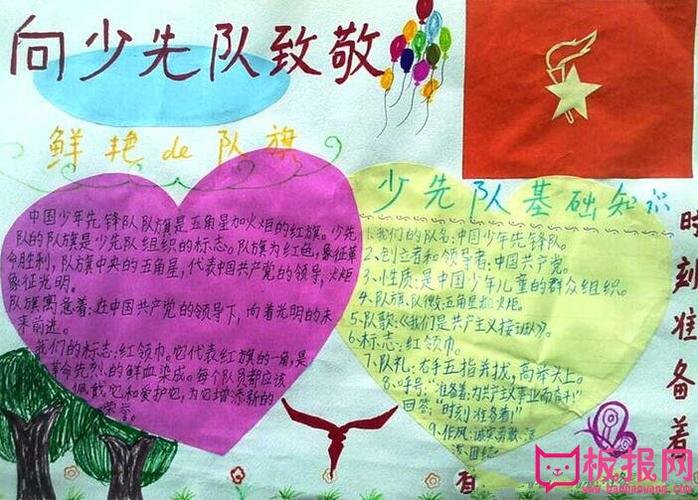 向少先队致敬
鲜艳de队旗
中国少年先锋队队旗是五角星加火炬的红旗。少先
队的队旗是少先队组织的标志。队旗为红色，象征革
命胜利，队旗中央的五角星，代表中国共产党的领导，火炬
象征光明。
队旗寓意着：在中国共产党的领导下，向着光明的未
来前进。
我们的标志：红领巾。它代表红旗的一角，是
革命先烈的鲜血染成。每个队员都应该
佩戴它和爱护它，为它增添新的
荣誉。
少先队基础知识
1、我们的队名：中国少年先锋队。
2、创立者和领导者：中国共产党。
3、性质：是中国少年儿童的群众组织。
4、队旗、队徽：五角星加火炬。
5、队歌：《我们是共产主义接班人》。
6、标志：红领巾。
7、队礼：右手五指并拢，高举头上。
8、呼号："准备着：为共产主义事业而奋斗"
回答："时刻准备着"
9、作风：诚实、勇敢、活
泼、团结
时刻准备着
板报网